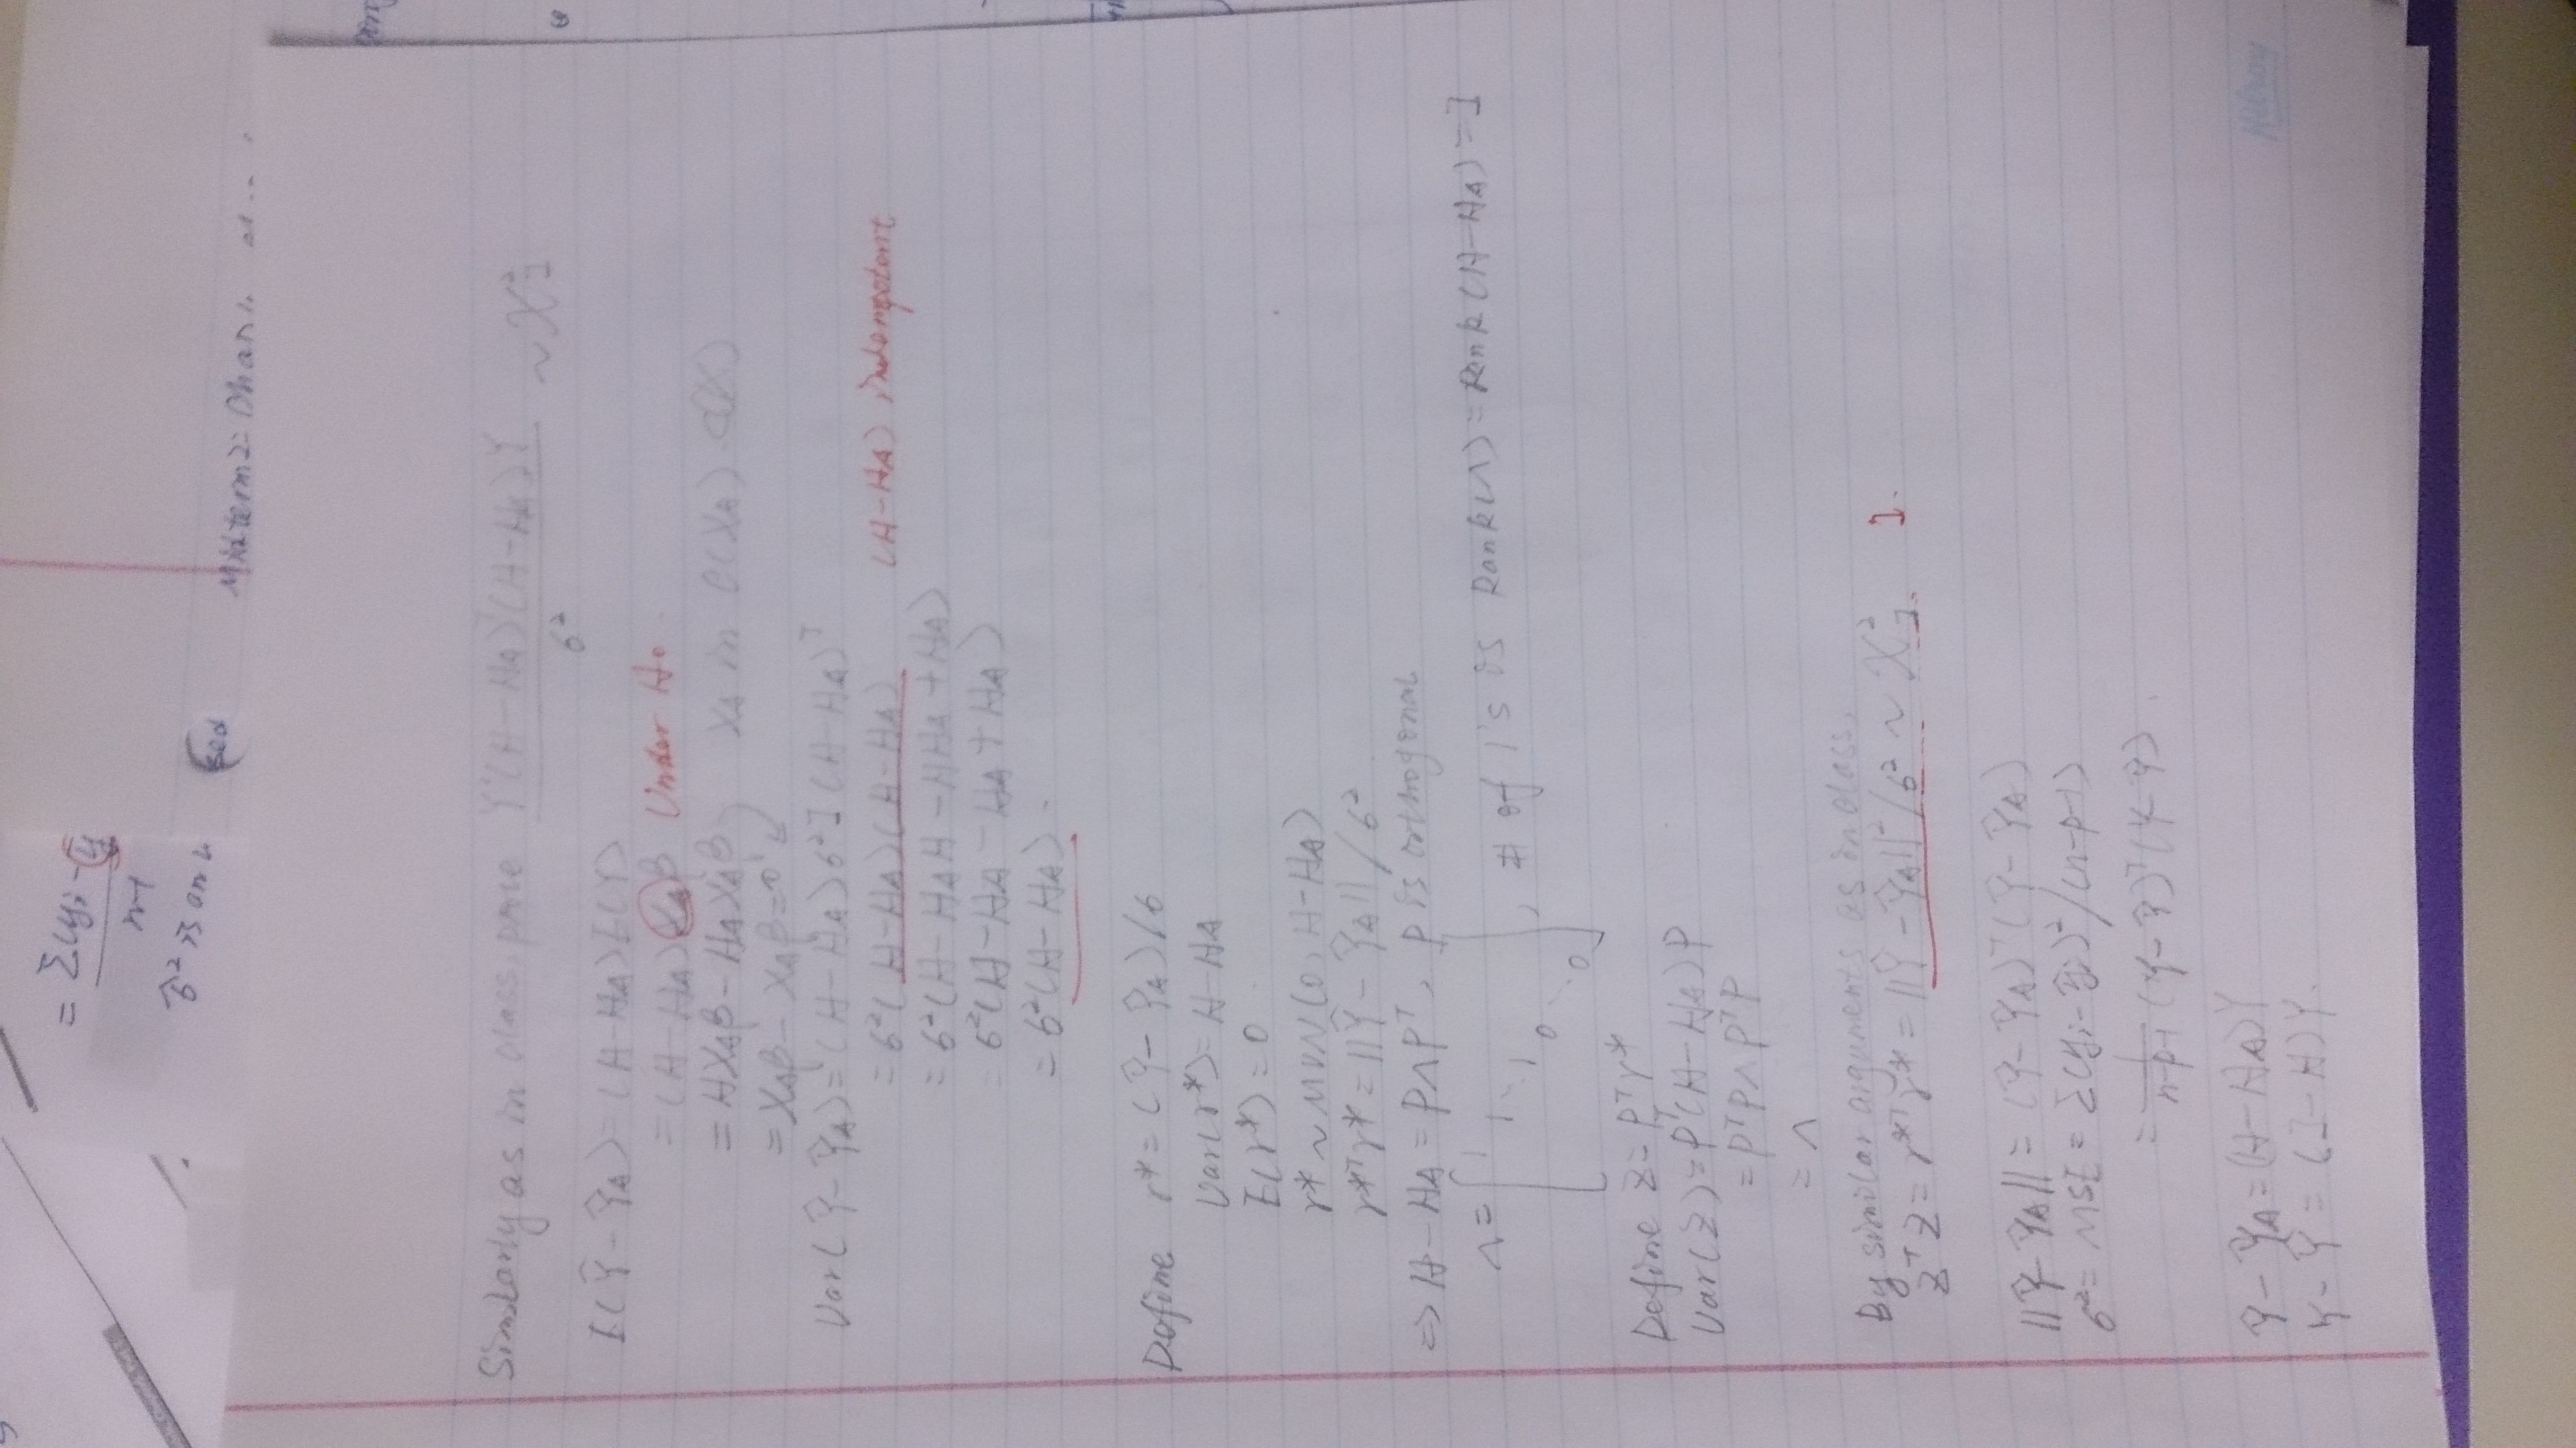 = Σ(yi - ȳ
n-1
σ̂² is an u
sed
Midterm2:
Similarly as in class, prove Y'(H-HA)'(H-HA)Y / σ² ~ χ²_J
E(Ŷ - ŶA) = (H-HA)E(Y)
= (H-HA)XAβ Under Ho.
= HXAβ - HAXAβ XA in C(XA)
= XAβ - XAβ = 0
Var(Ŷ-ŶA) = (H-HA)σ²I(H-HA)ᵀ
= σ²(H-HA)(H-HA) (H-HA) indempotent
= σ²(H-HAH-HHA+HA)
= σ²(H-HA-HA+HA)
= σ²(H-HA).
Define r* = (Ŷ-ŶA)/σ
Var(r*) = H-HA
E(r*) = 0
r* ~ MVN(0, H-HA)
r*ᵀr* = ||Ŷ-ŶA|| / σ²
⇒ H-HA = PΛPᵀ, P is orthogonal
Λ = [1 1 ⋱ 1 0 ⋱ 0], # of 1's is Rank(Λ) = Rank(H-HA) = J
Define Z = Pᵀr*
Var(Z) = Pᵀ(H-HA)P
= PᵀPΛPᵀP
= Λ
By similar arguments as in class,
ZᵀZ = r*ᵀr* = ||Ŷ-ŶA||²/σ² ~ χ²_J. J.
||Ŷ-ŶA|| = (Ŷ-ŶA)ᵀ(Ŷ-ŶA)
σ² = MSE = Σ(yi-ŷi)²/(n-p-1)
= 1/(n-p-1) (Y-Ŷ)ᵀ(Y-Ŷ).
Ŷ-ŶA = (H-HA)Y
Y-Ŷ = (I-H)Y.
Hilroy